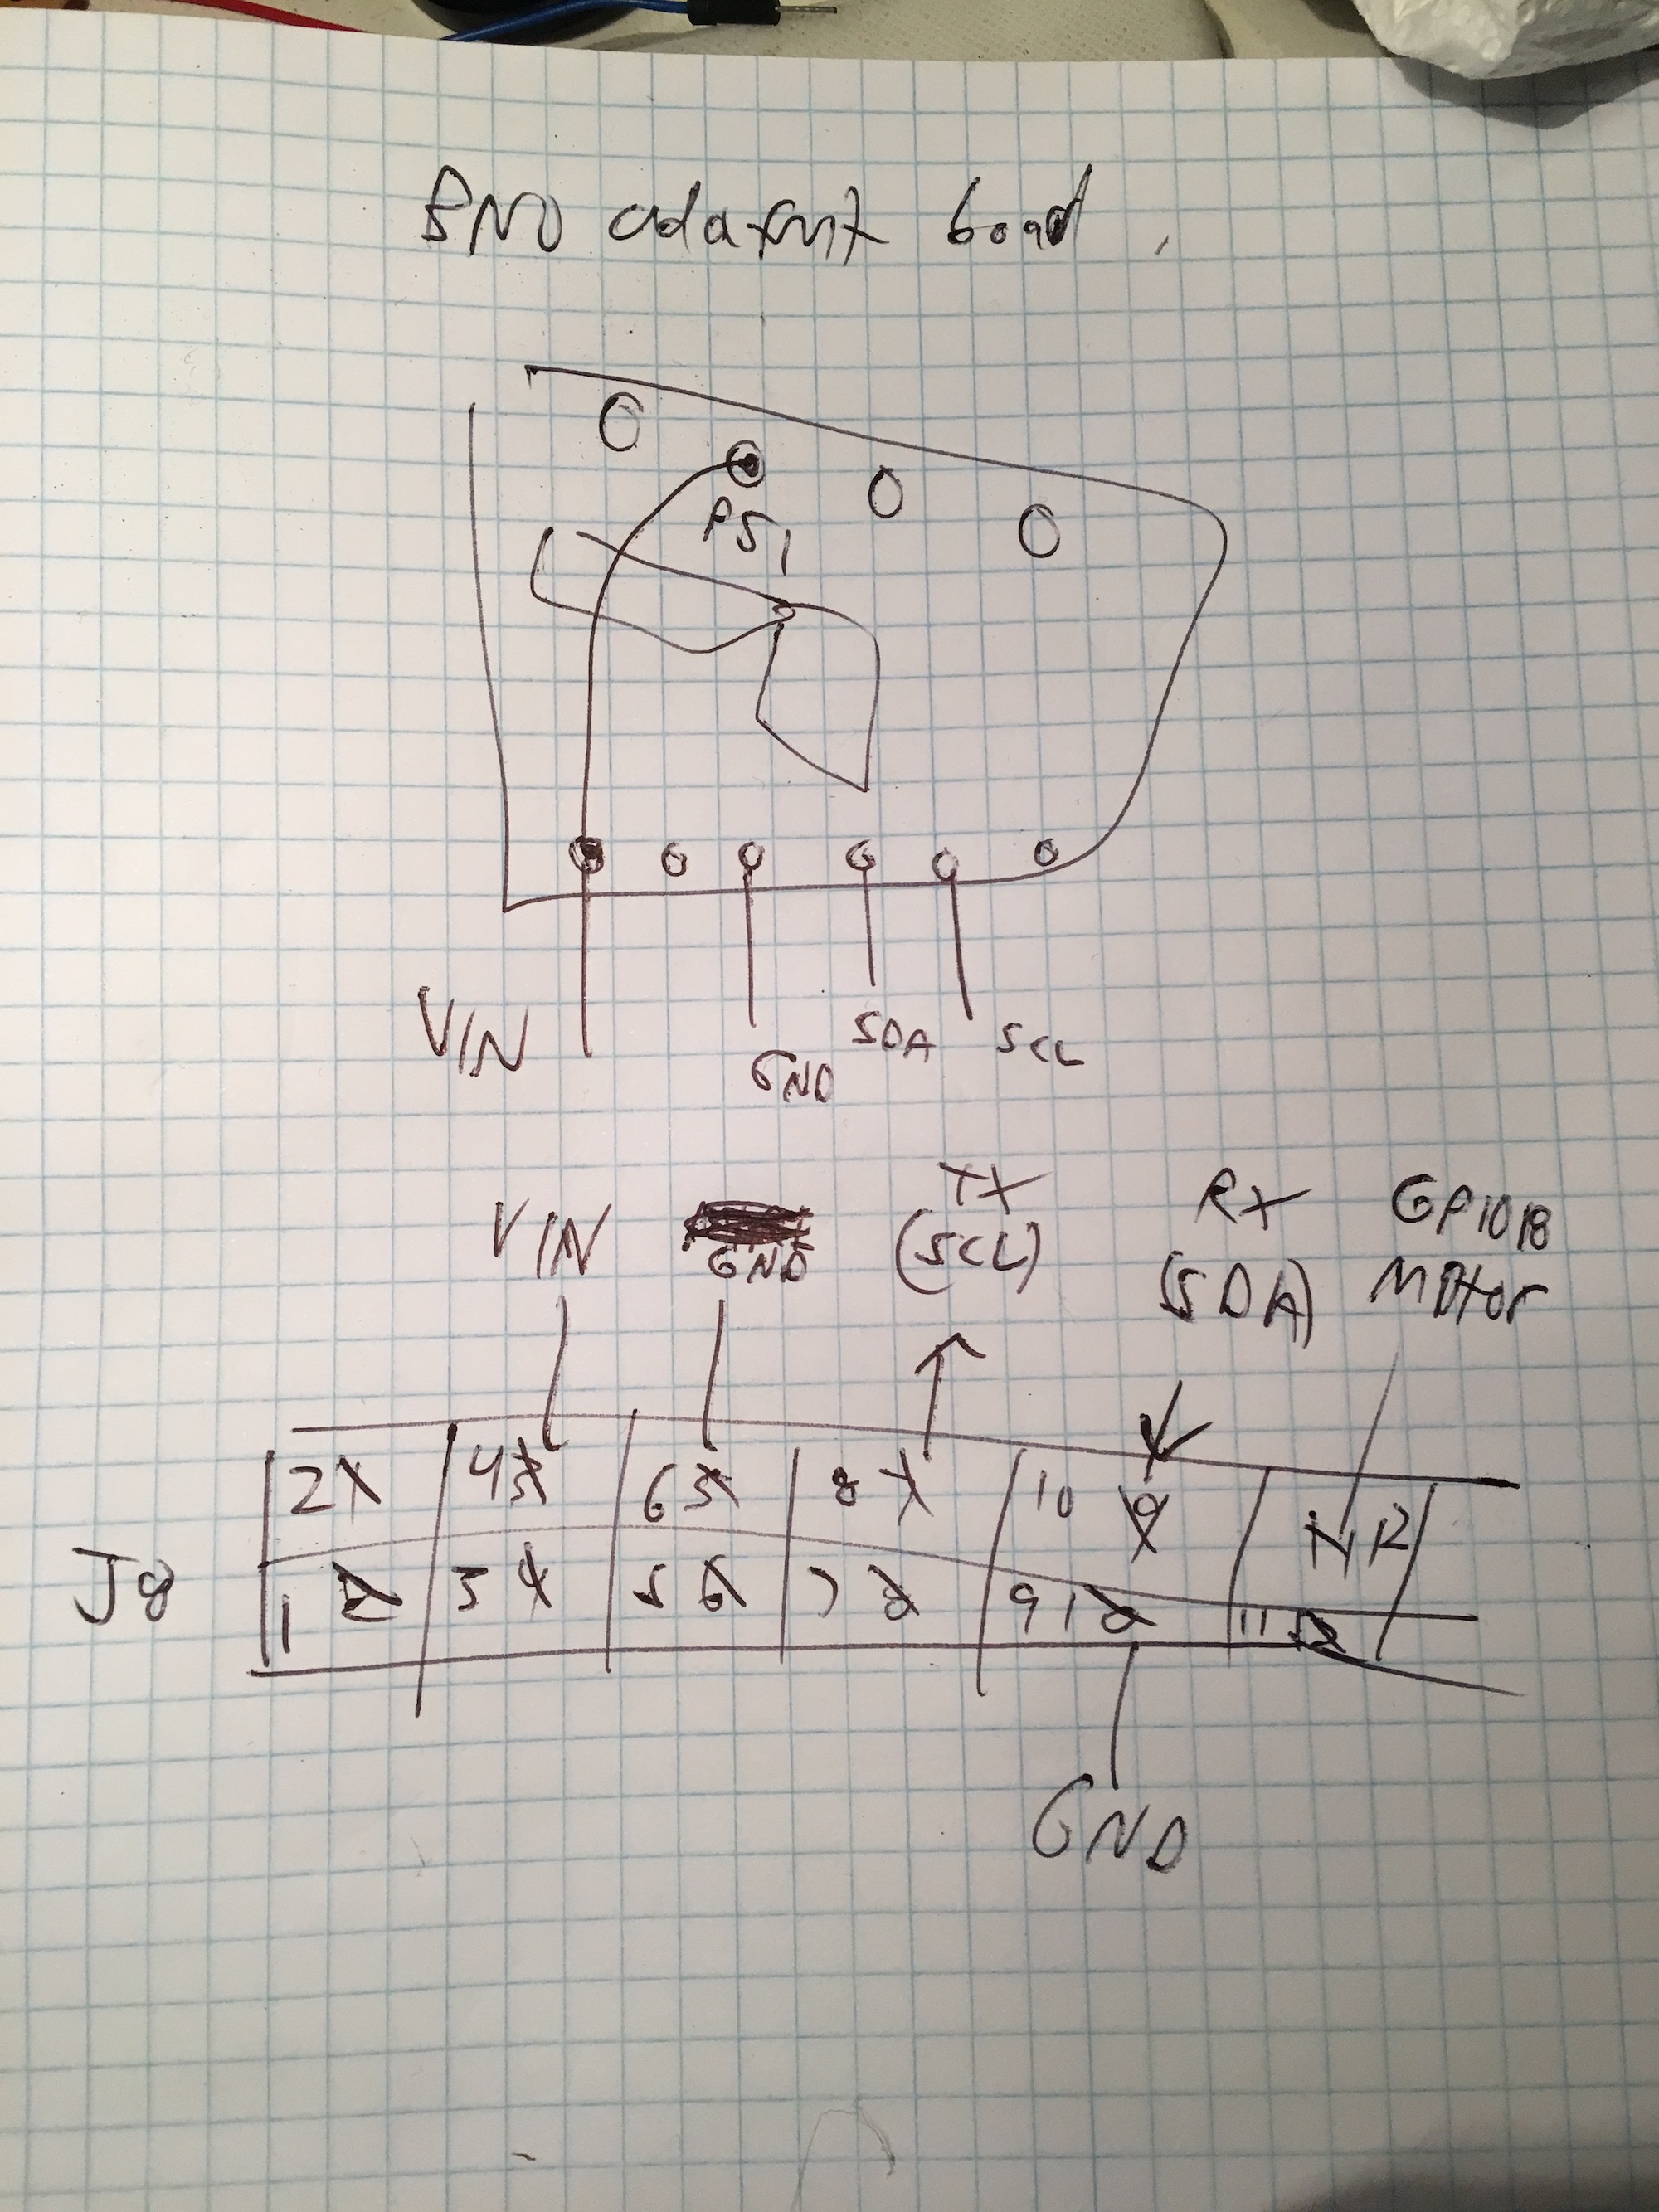 BNO adafruit board
PS1
VIN
GND
SDA
SCL
VIN
GND
TX
(SCL)
RX
(SDA)
GPIO18
Motor
2 4 6 8 10 12
J8
1 3 5 7 9 11
GND